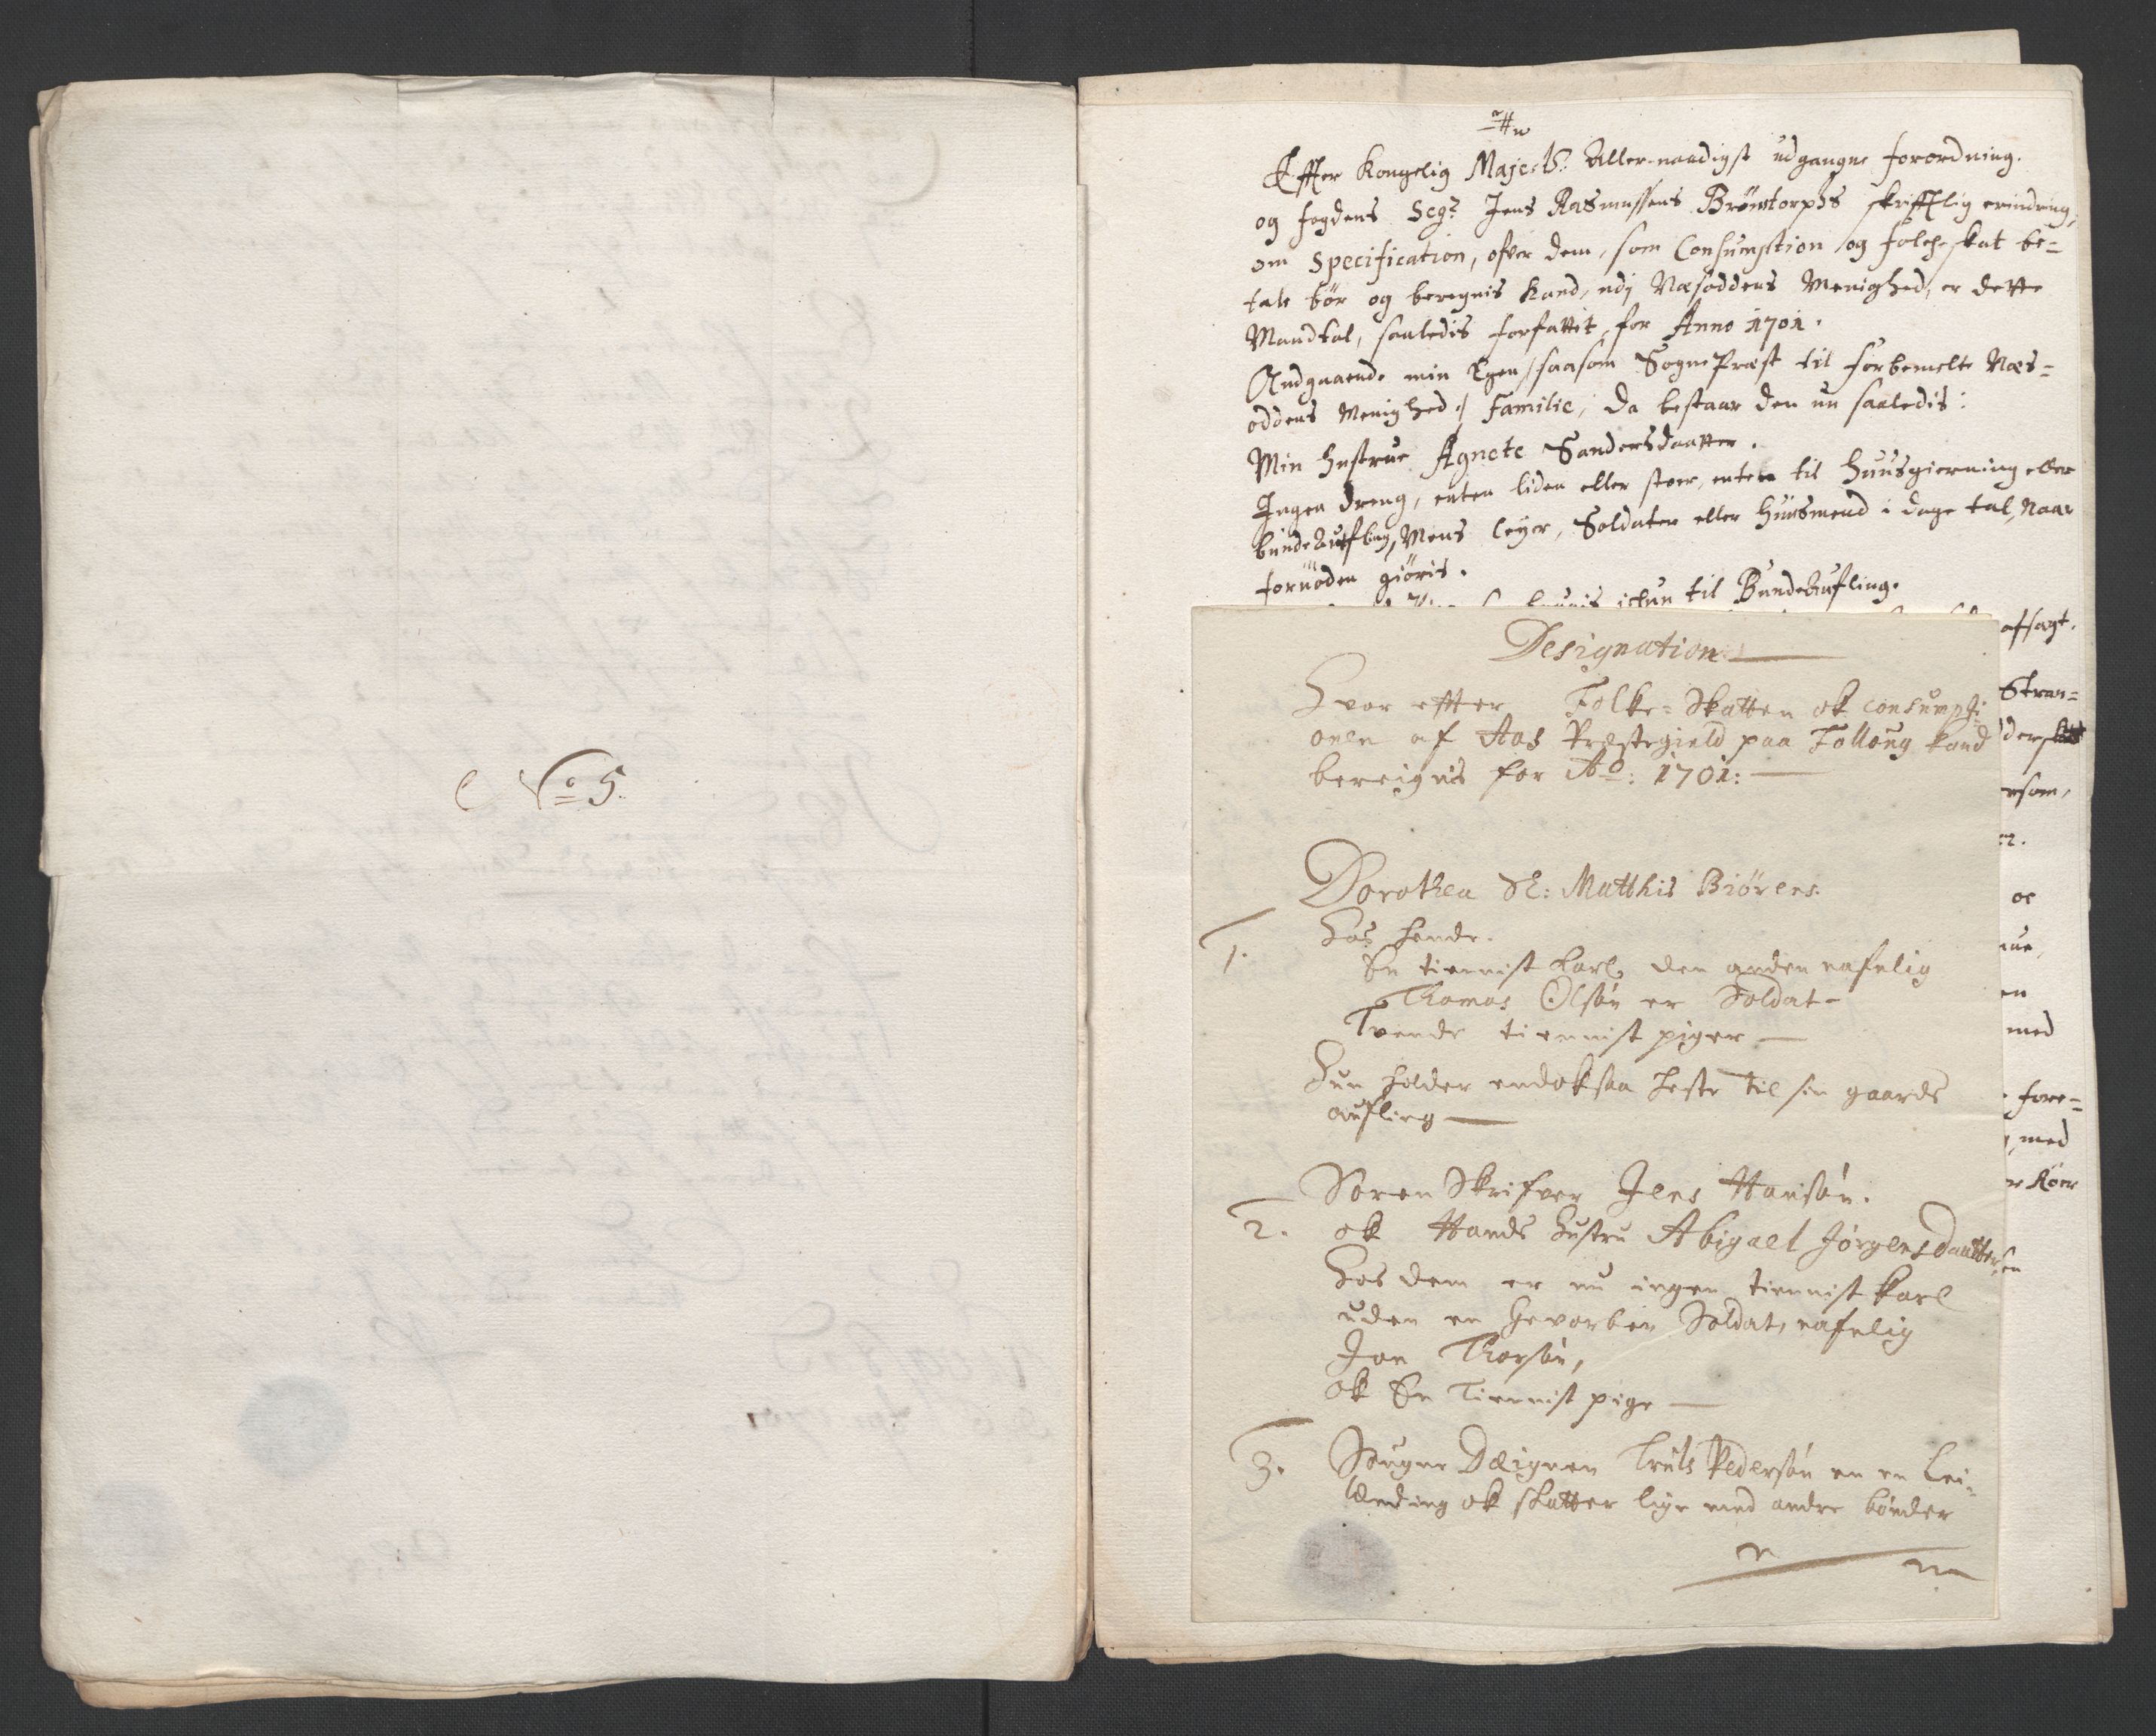 No 5.
Effter Kongelig Majests: Aller-naadigst udgangne forordning.
og fogdens Segr Jens Rasmussens Brønstorphs skrifftlig erindring,
om Specification, ofver dem, som Consumption og folche-skat be-
tale bør og beregnis kand, udj Næsoddens Menighed, er dette
Mandtal, saaledis forfattit, for Anno 1701.
Andgaaende min Egen /: saasom SognePræst til forbemelte Næs-
oddens Menighed :/ Familie, da bestaar den nu saaledis:
Min Hustrue Agnete Sandersdaatter.
Ingen dreng, enten liden eller stoer, enten til Huusgierning eller
bunde Aufling, Mens leyer, Soldater eller Huusmend i dage tal, Naar
fornøden giøris.
til Bunde Aufling.
afsagt.
Stran-
rsom,
oc
en
med
fore-
med
Designation
Hvor effter Folke-Skatten ok consumpti-
onen af Aas Præstegield paa Folloug kand
bereignis for Ao: 1701:
Dorothea Sl: Matthis Biørens.
1. Hos hende.
En tiennist karl, den anden nafnlig
Thomas Olsøn er Soldat-
Tvende tiennist piger
Hun holder endoksaa heste til sin gaards
aufling
Soren Skrifver Jens Hansøn.
2. ok Hands Hustru Abigael Jørgensdaatter
Hos dem er nu ingen tiennist karl
uden en Gevorben Soldat, nafnlig
Jon Thorsøn,
ok En Tiennist pige
3. Sougne Dæignen Truls Pedersøn en en Lei-
lænding ok skatter lige med andre bønder